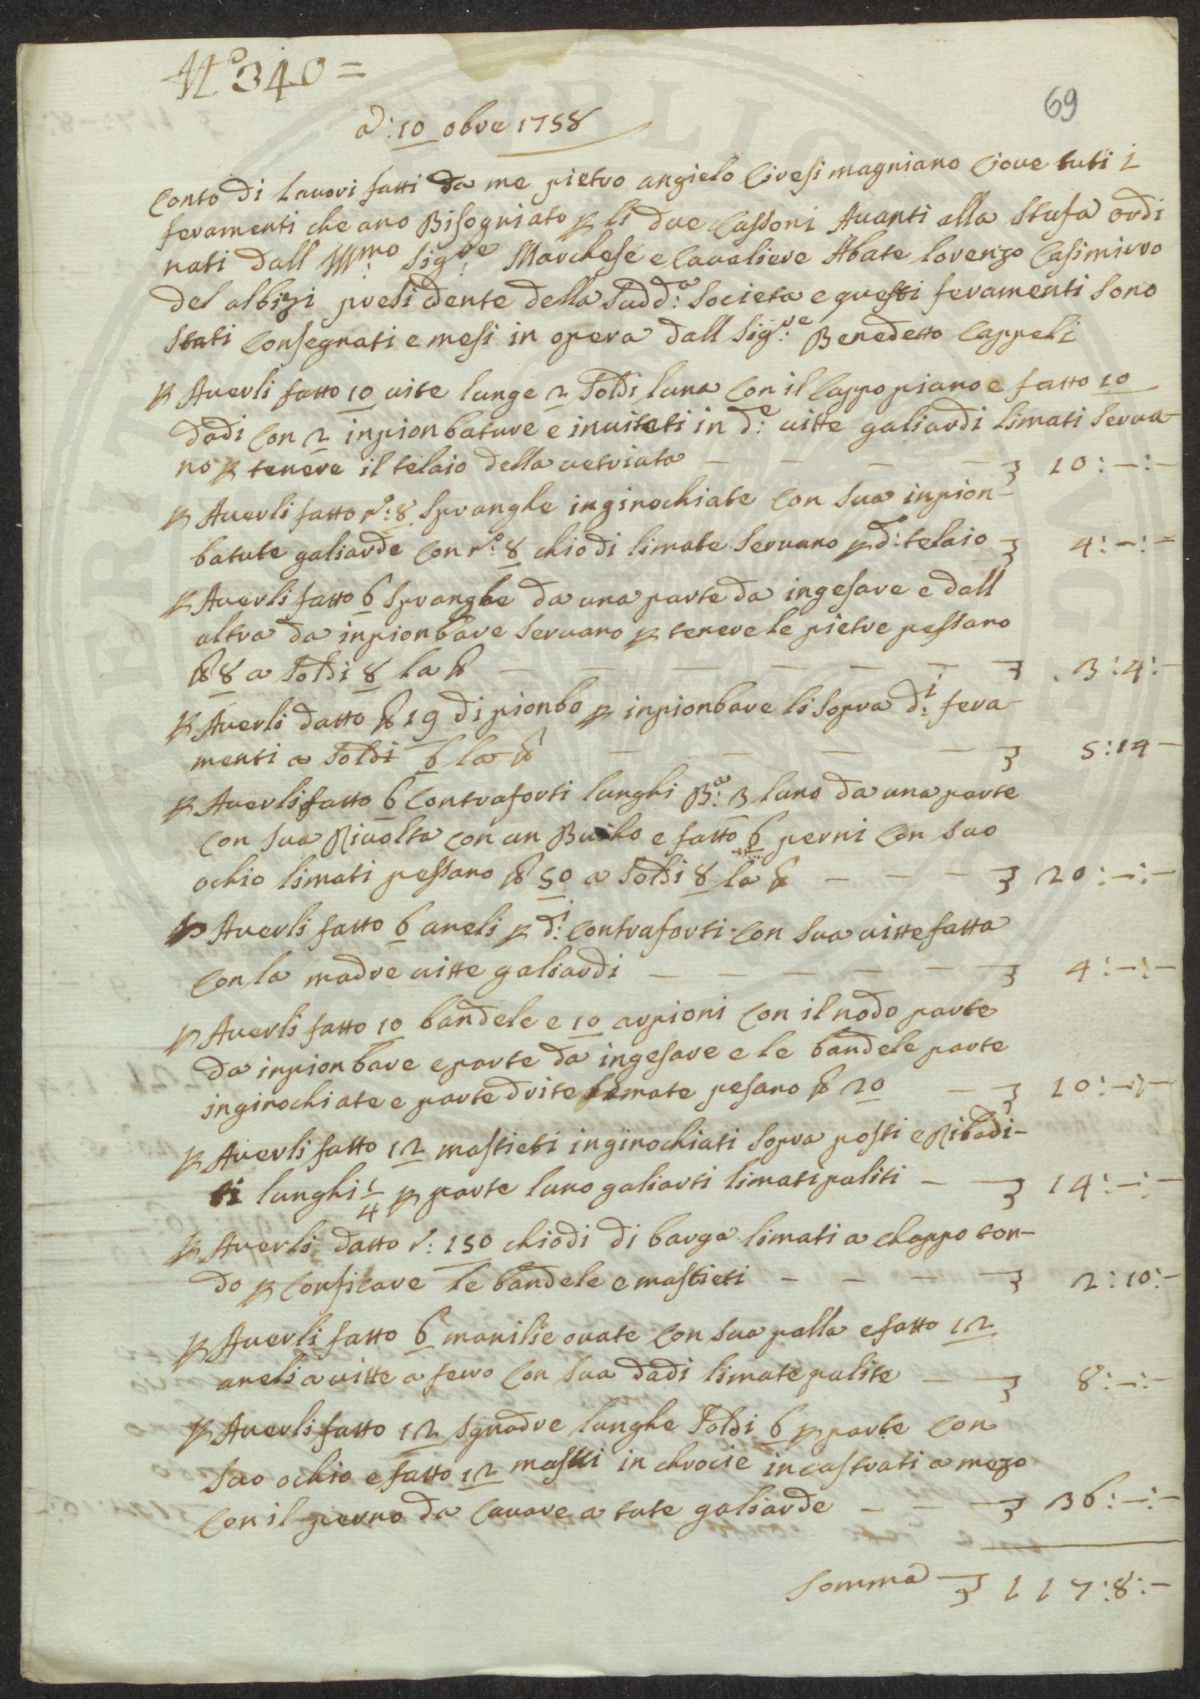 N.o 340 =
69
a: 10 obre 1758
Conto di lavori fatti da me pietro angielo Ciresi magniano Ciove tuti i
feramenti che ano Bisogniato p li due Cassoni Avanti alla Stufa ordi
nati dall Ill:mo Sig:re Marchese e Cavaliere Abate lorenzo Casimirro
del albizi presidente della Sudd:a Societa e questi feramenti Sono
Stati Consegnati e mesi in opera dall Sig:re Benedetto Cappeli
p Averli fatto 10 vite lunge 2 Soldi luna Con il Cappo piano e fatto 10
dadi Con 2 inpionbature e invitati in d:e vitte galiardi limati Serva-
no p tenere il telaio della vetriata — — — — 10:—:—
p Averli fatto n:o 8 Spranghe inginochiate Con Sua inpion-
batute galiarde Con n:o 8 chiodi limate Servano p d:o telaio 4:—:—
p Averli fatto 6 Spranghe da una parte da ingesare e dall
altra da inpionbare Servano p tenere le pietre pessano
lb 8 a Soldi 8 la lb — — — — — — 3:4:—
p Averli datto lb 19 di pionbo p inpionbare li Sopra d:i fera-
menti a Soldi 6 la lb — — — — 5:14—
p Averli fatto 6 Contraforti lunghi B:a 3 luno da una parte
Con Sua Rivolta Con un Bucho e fatto 6 perni Con Suo
ochio limati pessano lb 50 a Soldi 8 la lb — — — — 20:—:—
p Averli fatto 6 aneli p d:i Contraforti Con Sua vitte fatta
Con la madre vitte galiardi — — — — — — 4:—:—
p Averli fatto 10 bandele e 10 arpioni Con il nodo parte
da inpionbare e parte da ingesare e le bandele parte
inginochiate e parte drite limate pesano lb 20 — 10:—:—
p Averli fatto 12 mastieti inginochiati Sopra posti e Ribadi-
ti lunghi 1/4 p parte luno galiarti limati puliti — — 14:—:—
p Averli datto n: 150 chiodi di barga limati a chappo ton-
do p Conficare le bandele e mastieti — — — — 2:10:—
p Averli fatto 6 manilie ovate Con Sua palla e fatto 12
aneli a vitte a ferro Con Sua dadi limate pulite — — 8:—:—
p Averli fatto 12 Squadre lunghe Soldi 6 p parte Con
Suo ochio e fatto 12 masti in chrocie incastrati a mezo
Con il perno da Cavare a tute galiarde — — — 36:—:—
Somma 117:8:—